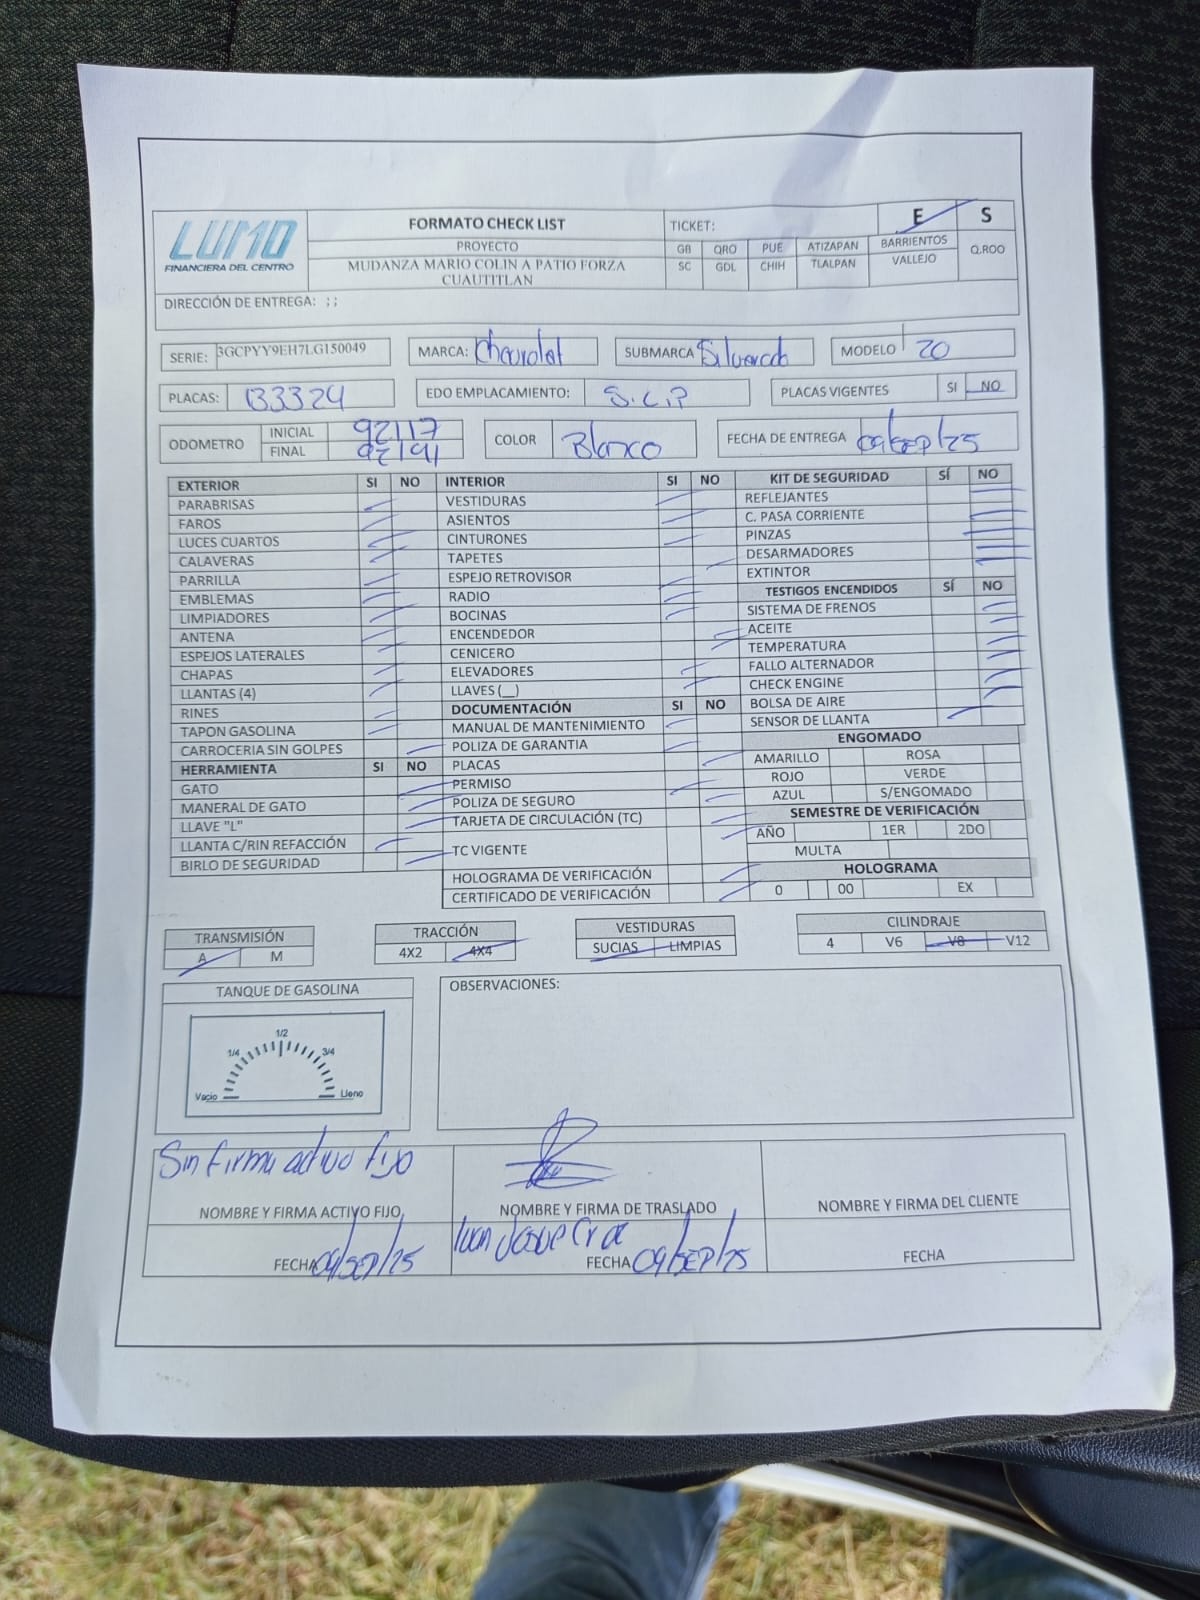 LUMO
FINANCIERA DEL CENTRO
FORMATO CHECK LIST
PROYECTO
MUDANZA MARIO COLIN A PATIO FORZA
CUAUTITLAN
TICKET:
E S
GB QRO PUE ATIZAPAN BARRIENTOS Q.ROO
SC GDL CHIH TLALPAN VALLEJO
DIRECCIÓN DE ENTREGA: ; ;
SERIE: 3GCPYY9EH7LG150049 MARCA: Chevrolet SUBMARCA Silverado MODELO 20
PLACAS: 133324 EDO EMPLACAMIENTO: S.L.P PLACAS VIGENTES SI NO
ODOMETRO INICIAL 92117 COLOR Blanco FECHA DE ENTREGA 09/SEP/25
FINAL 92191
EXTERIOR SI NO INTERIOR SI NO KIT DE SEGURIDAD SÍ NO
PARABRISAS VESTIDURAS REFLEJANTES
FAROS ASIENTOS C. PASA CORRIENTE
LUCES CUARTOS CINTURONES PINZAS
CALAVERAS TAPETES DESARMADORES
PARRILLA ESPEJO RETROVISOR EXTINTOR
EMBLEMAS RADIO TESTIGOS ENCENDIDOS SÍ NO
LIMPIADORES BOCINAS SISTEMA DE FRENOS
ANTENA ENCENDEDOR ACEITE
ESPEJOS LATERALES CENICERO TEMPERATURA
CHAPAS ELEVADORES FALLO ALTERNADOR
LLANTAS (4) LLAVES (__) CHECK ENGINE
RINES DOCUMENTACIÓN SI NO BOLSA DE AIRE
TAPON GASOLINA MANUAL DE MANTENIMIENTO SENSOR DE LLANTA
CARROCERIA SIN GOLPES POLIZA DE GARANTIA ENGOMADO
HERRAMIENTA SI NO PLACAS AMARILLO ROSA
GATO PERMISO ROJO VERDE
MANERAL DE GATO POLIZA DE SEGURO AZUL S/ENGOMADO
LLAVE "L" TARJETA DE CIRCULACIÓN (TC) SEMESTRE DE VERIFICACIÓN
LLANTA C/RIN REFACCIÓN TC VIGENTE AÑO 1ER 2DO
BIRLO DE SEGURIDAD MULTA
HOLOGRAMA DE VERIFICACIÓN HOLOGRAMA
CERTIFICADO DE VERIFICACIÓN 0 00 EX
TRANSMISIÓN TRACCIÓN VESTIDURAS CILINDRAJE
A M 4X2 4X4 SUCIAS LIMPIAS 4 V6 V8 V12
TANQUE DE GASOLINA OBSERVACIONES:
1/2
1/4 3/4
Vacio Lleno
Sin firma activo fijo
NOMBRE Y FIRMA ACTIVO FIJO NOMBRE Y FIRMA DE TRASLADO NOMBRE Y FIRMA DEL CLIENTE
Juan Josue
FECHA 09/SEP/25 FECHA 09/SEP/25 FECHA